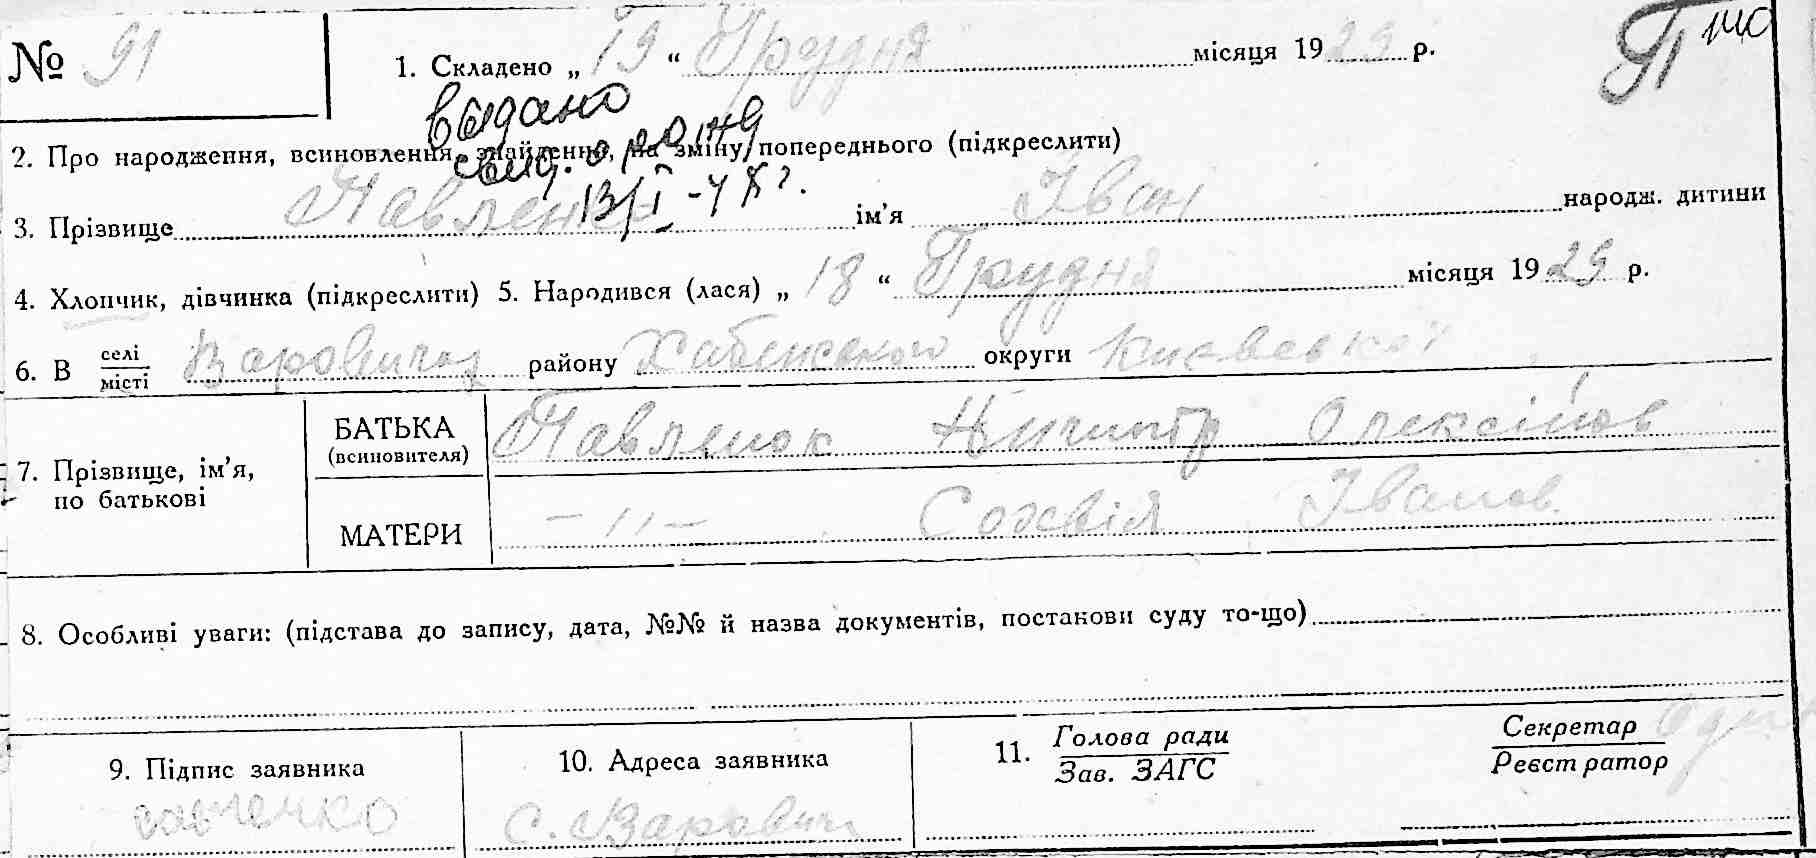 № 91
1. Складено „ 19 “ Грудня місяця 1929 р.
видано
2. Про народження, всиновлення, знайдення, на зміну попереднього (підкреслити)
свид. о рожд
13/I -4 г.
3. Прізвище Павленк ім’я Іван народж. дитини
4. Хлопчик, дівчинка (підкреслити) 5. Народився (лася) „ 18 “ Грудня місяця 1929 р.
6. В селі/місті Варовичах району Хабенського округи Київської
7. Прізвище, ім’я, по батькові
БАТЬКА (всиновителя) Павленок Ничипір Олексійов
МАТЕРИ –〃– Іванов.
8. Особливі уваги: (підстава до запису, дата, №№ й назва документів, постанови суду то-що)
9. Підпис заявника
10. Адреса заявника
с. Варовичі
11. Голова ради / Зав. ЗАГС
Секретар / Реєстратор